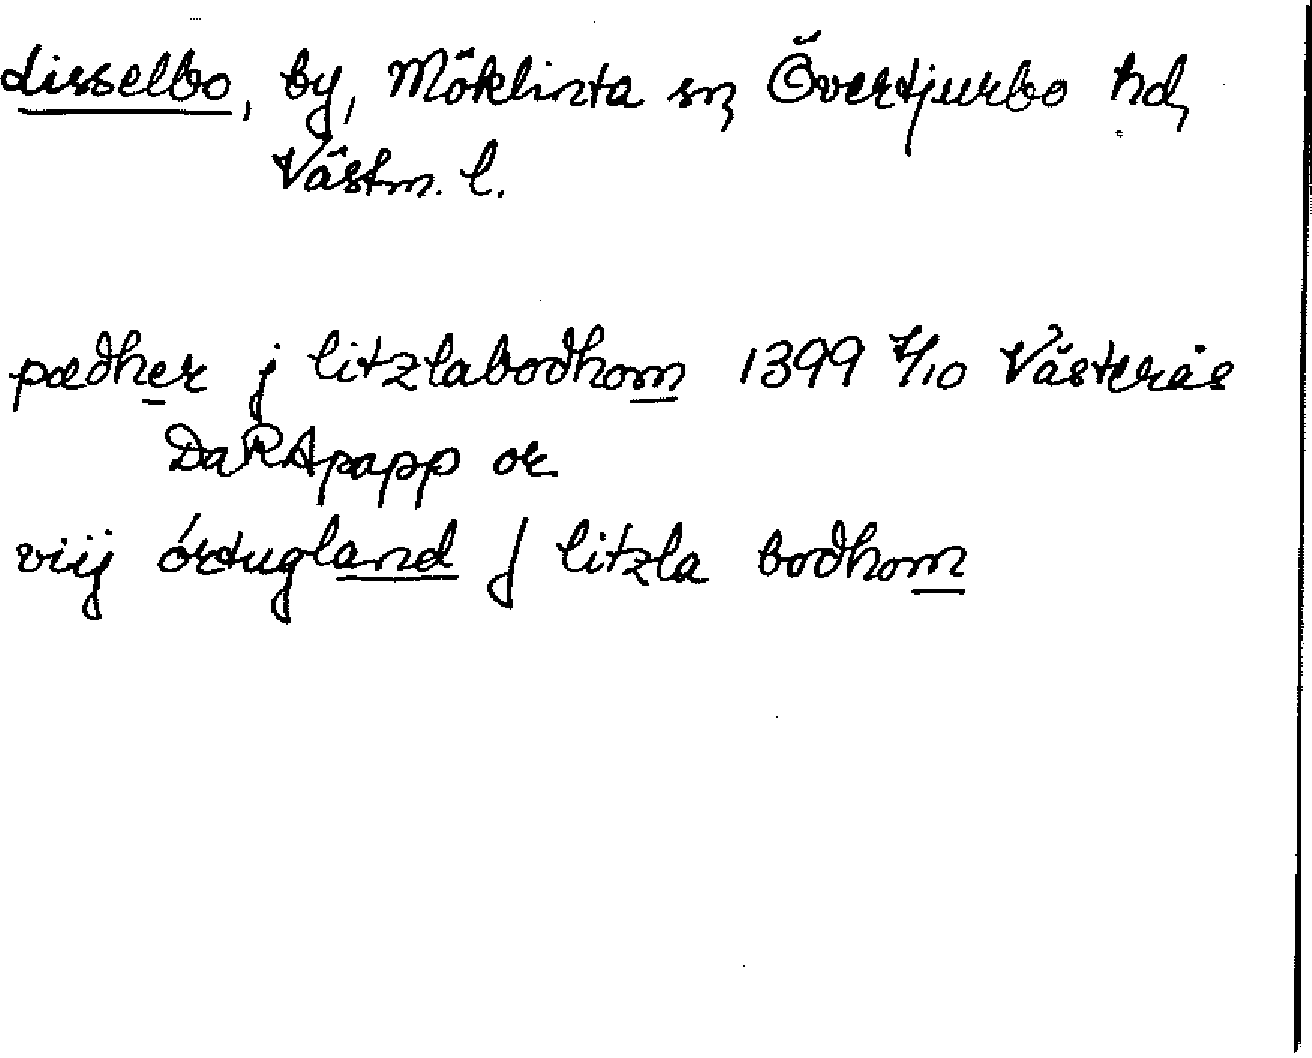 Lisselbo, by, Möklinta sn, Övertjurbo hd,
Västm. l.
pædher j litzlabodhom 1399 7/10 Västerås
DaRApapp or
viij órtugland J litzla bodhom